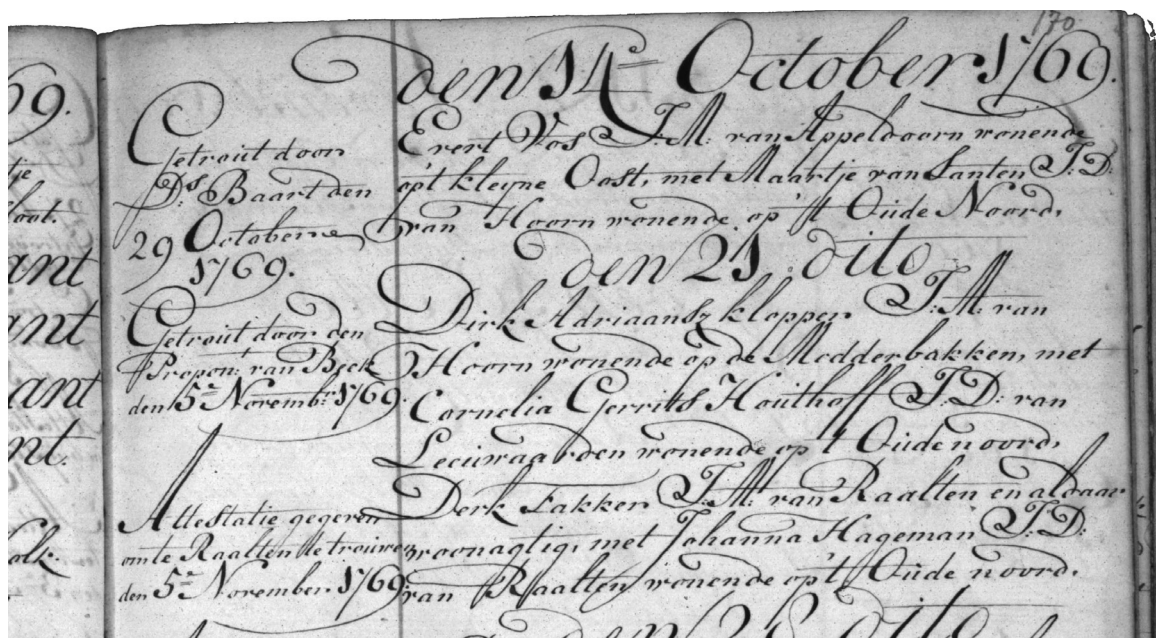 170
den 14e October 1769.
Getrout door
Ds. Baart den
29 October
1769.
Evert Vos J:M: van Appeldoorn wonende
op't kleyne Oost, met Maartje van Santen J:D:
van Hoorn wonende op 't Oude Noord,
den 21 dito
Getrout door den
Propon: van Beek
den 5e Novembr. 1769.
Dirk Adriaansz klopper J:M: van
Hoorn wonende op de Modderbakken, met
Cornelia Gerrits Houthoff J:D: van
Leeuwaarden wonende op 't Oude noord,
Attestatie gegeven
om te Raalten te trouwen
den 5e November 1769.
Derk Fakker J:M: van Raalten en aldaar
woonagtig, met Johanna Hageman J:D:
van Raalten wonende op't Oude noord,
den 28 dito
69.
tje
loot.
ant
ant
ant
nt.
olk